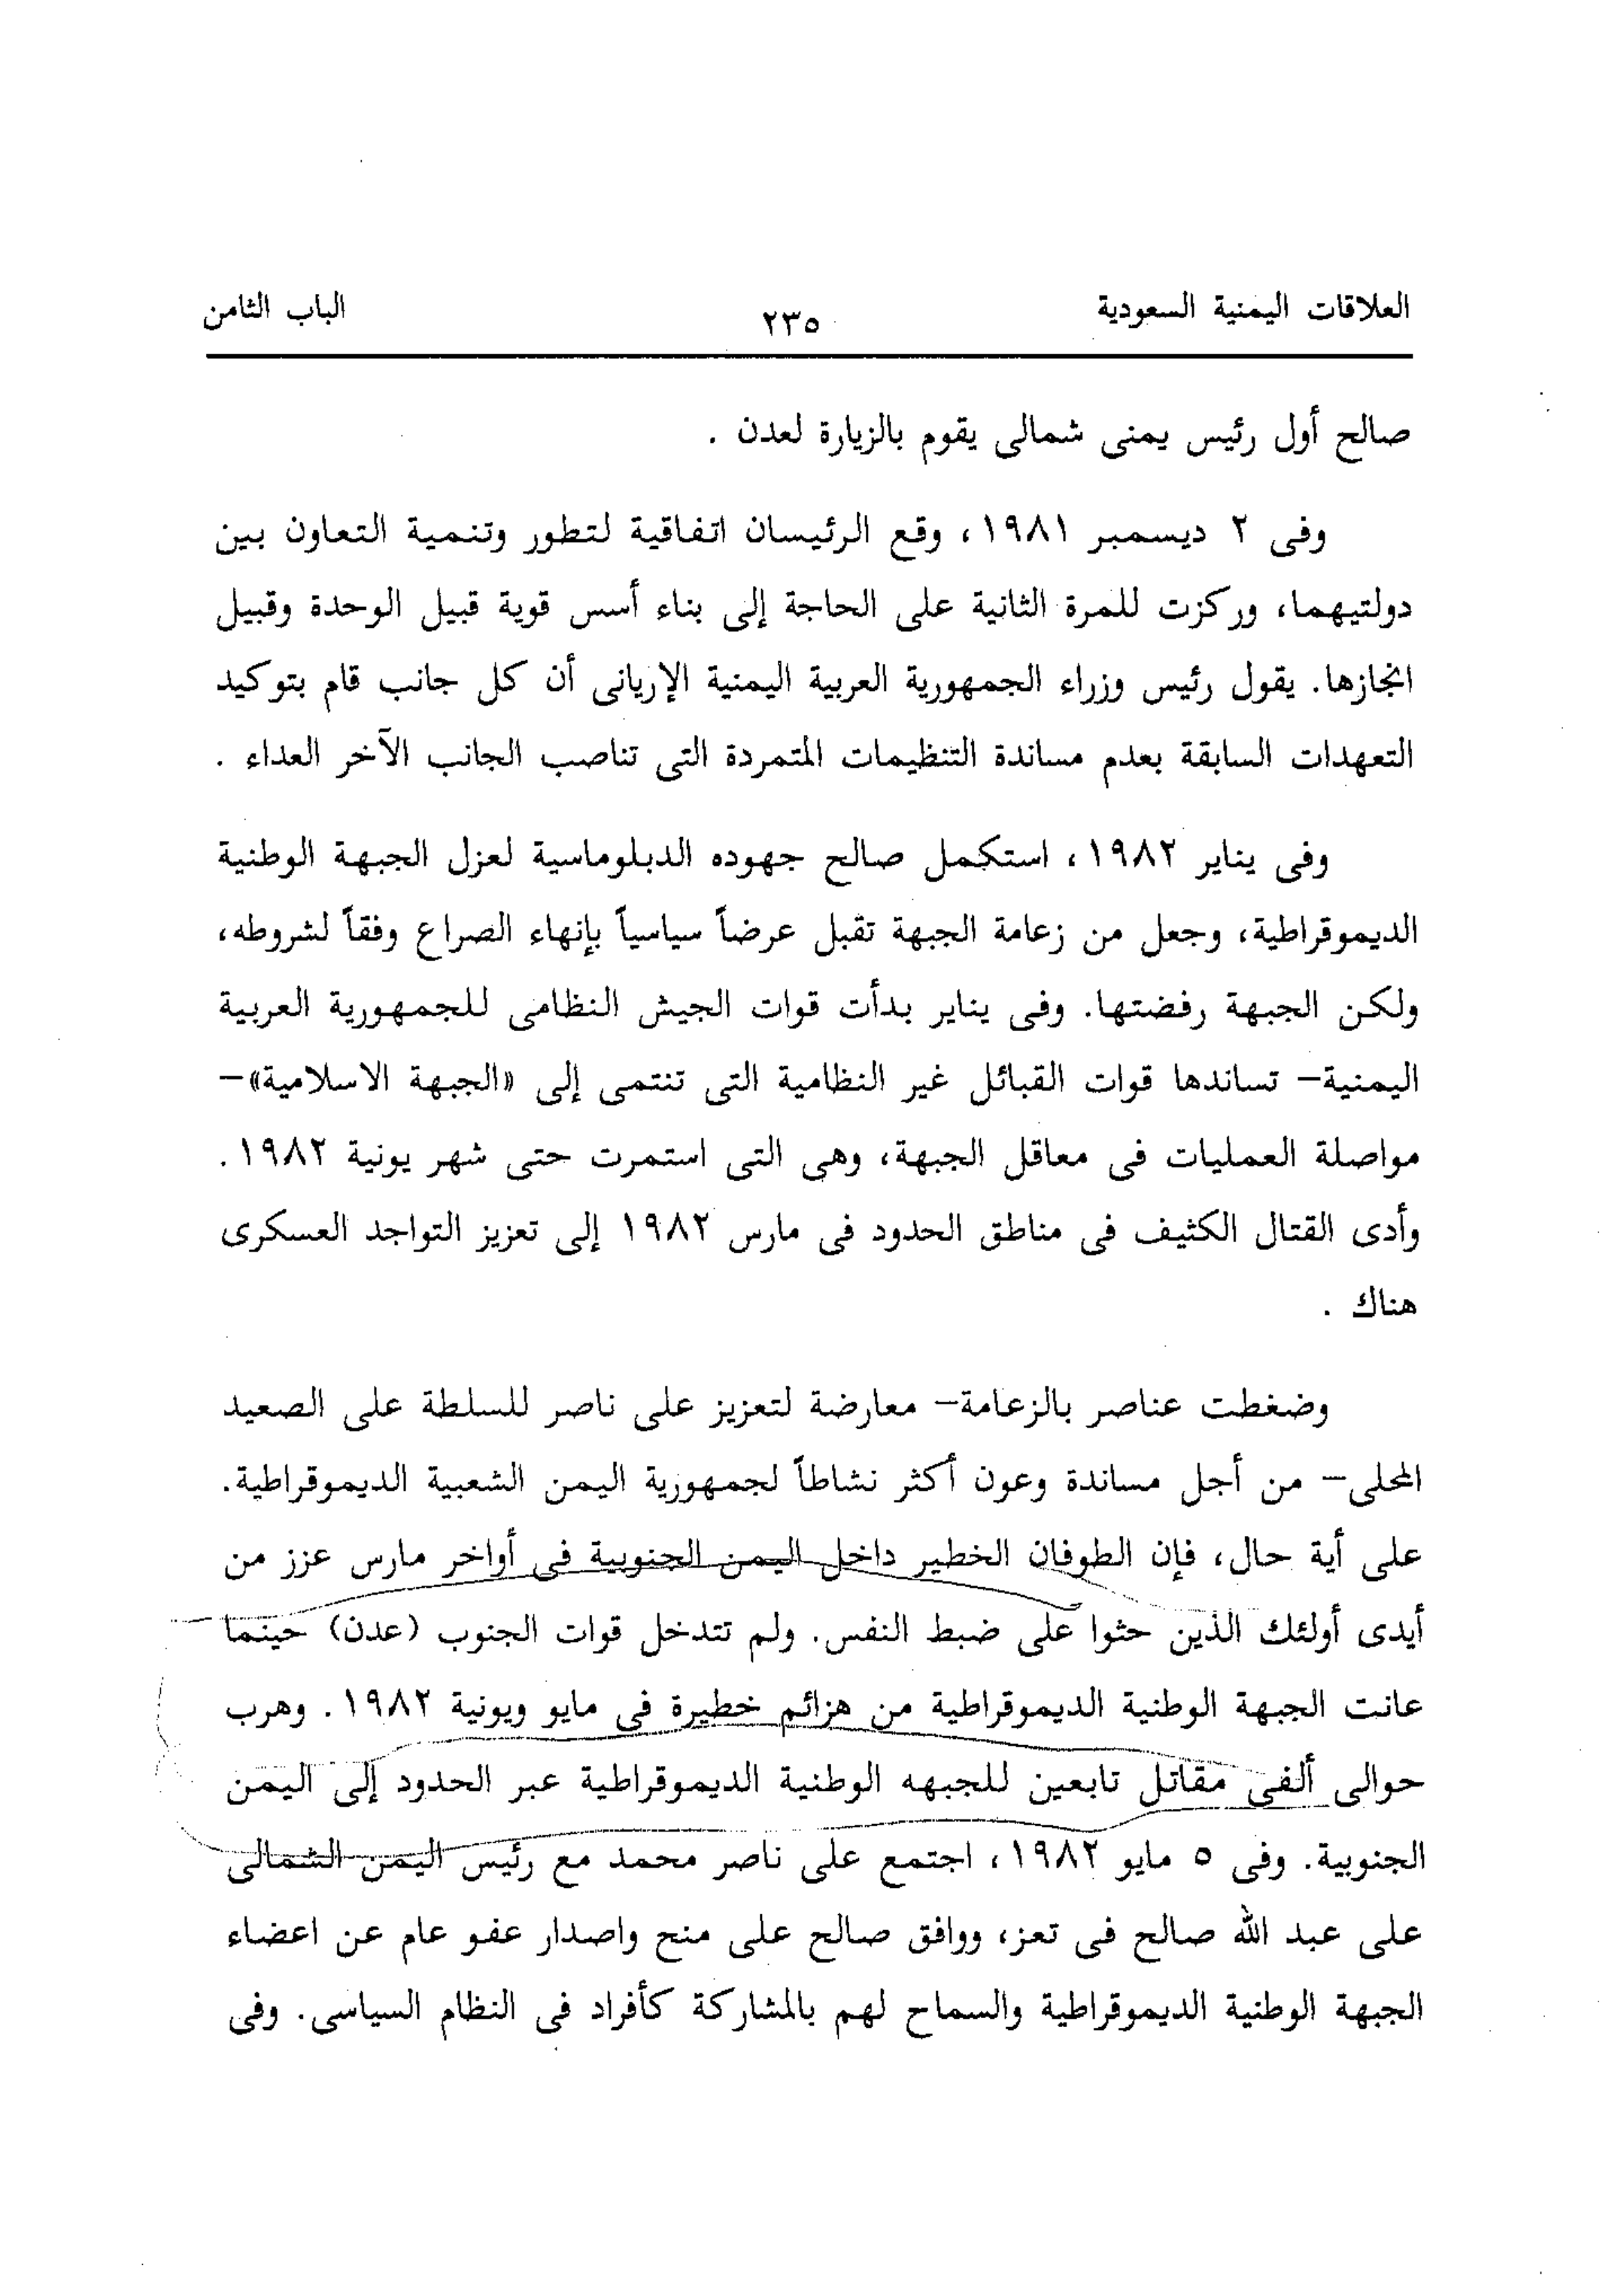 العلاقات اليمنية السعودية
٢٣٥
الباب الثامن
صالح أول رئيس يمنى شمالى يقوم بالزيارة لعدن .
وفى ٢ ديسمبر ١٩٨١، وقع الرئيسان اتفاقية لتطور وتنمية التعاون بين
دولتيهما، وركزت للمرة الثانية على الحاجة إلى بناء أسس قوية قبيل الوحدة وقبيل
انجازها. يقول رئيس وزراء الجمهورية العربية اليمنية الإريانى أن كل جانب قام بتوكيد
التعهدات السابقة بعدم مساندة التنظيمات المتمردة التى تناصب الجانب الآخر العداء .
وفى يناير ١٩٨٢، استكمل صالح جهوده الدبلوماسية لعزل الجبهة الوطنية
الديموقراطية، وجعل من زعامة الجبهة تقبل عرضاً سياسياً بإنهاء الصراع وفقاً لشروطه،
ولكن الجبهة رفضتها. وفى يناير بدأت قوات الجيش النظامى للجمهورية العربية
اليمنية– تساندها قوات القبائل غير النظامية التى تنتمى إلى «الجبهة الاسلامية»–
مواصلة العمليات فى معاقل الجبهة، وهى التى استمرت حتى شهر يونية ١٩٨٢.
وأدى القتال الكثيف فى مناطق الحدود فى مارس ١٩٨٢ إلى تعزيز التواجد العسكرى
هناك .
وضغطت عناصر بالزعامة– معارضة لتعزيز على ناصر للسلطة على الصعيد
المحلى– من أجل مساندة وعون أكثر نشاطاً لجمهورية اليمن الشعبية الديموقراطية.
على أية حال، فإن الطوفان الخطير داخل اليمن الجنوبية فى أواخر مارس عزز من
أيدى أولئك الذين حثوا على ضبط النفس. ولم تتدخل قوات الجنوب (عدن) حينما
عانت الجبهة الوطنية الديموقراطية من هزائم خطيرة فى مايو ويونية ١٩٨٢. وهرب
حوالى ألفى مقاتل تابعين للجبهه الوطنية الديموقراطية عبر الحدود إلى اليمن
الجنوبية. وفى ٥ مايو ١٩٨٢، اجتمع على ناصر محمد مع رئيس اليمن الشمالى
على عبد الله صالح فى تعز، ووافق صالح على منح واصدار عفو عام عن اعضاء
الجبهة الوطنية الديموقراطية والسماح لهم بالمشاركة كأفراد فى النظام السياسى. وفى